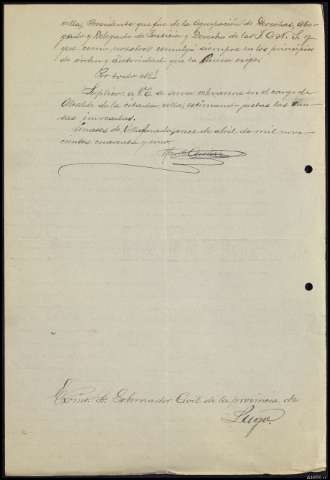 villa, Presidente que fue de la Agrupación de Derechas, Abo-
gado y Delegado de Justicia y Derecho de las J.O.N.S. y
que como nosotros comulgó siempre en los principios
de orden y autoridad que la Nueva
Por todo ello
Suplican a V.E. se sirva relevarnos en el cargo de
Alcalde de la citada villa, estimando justas las cau-
sas invocadas.
de abril de mil nove-
cientos cuarenta y uno.
Excmo. Sr. Gobernador Civil de la provincia de
Lugo.